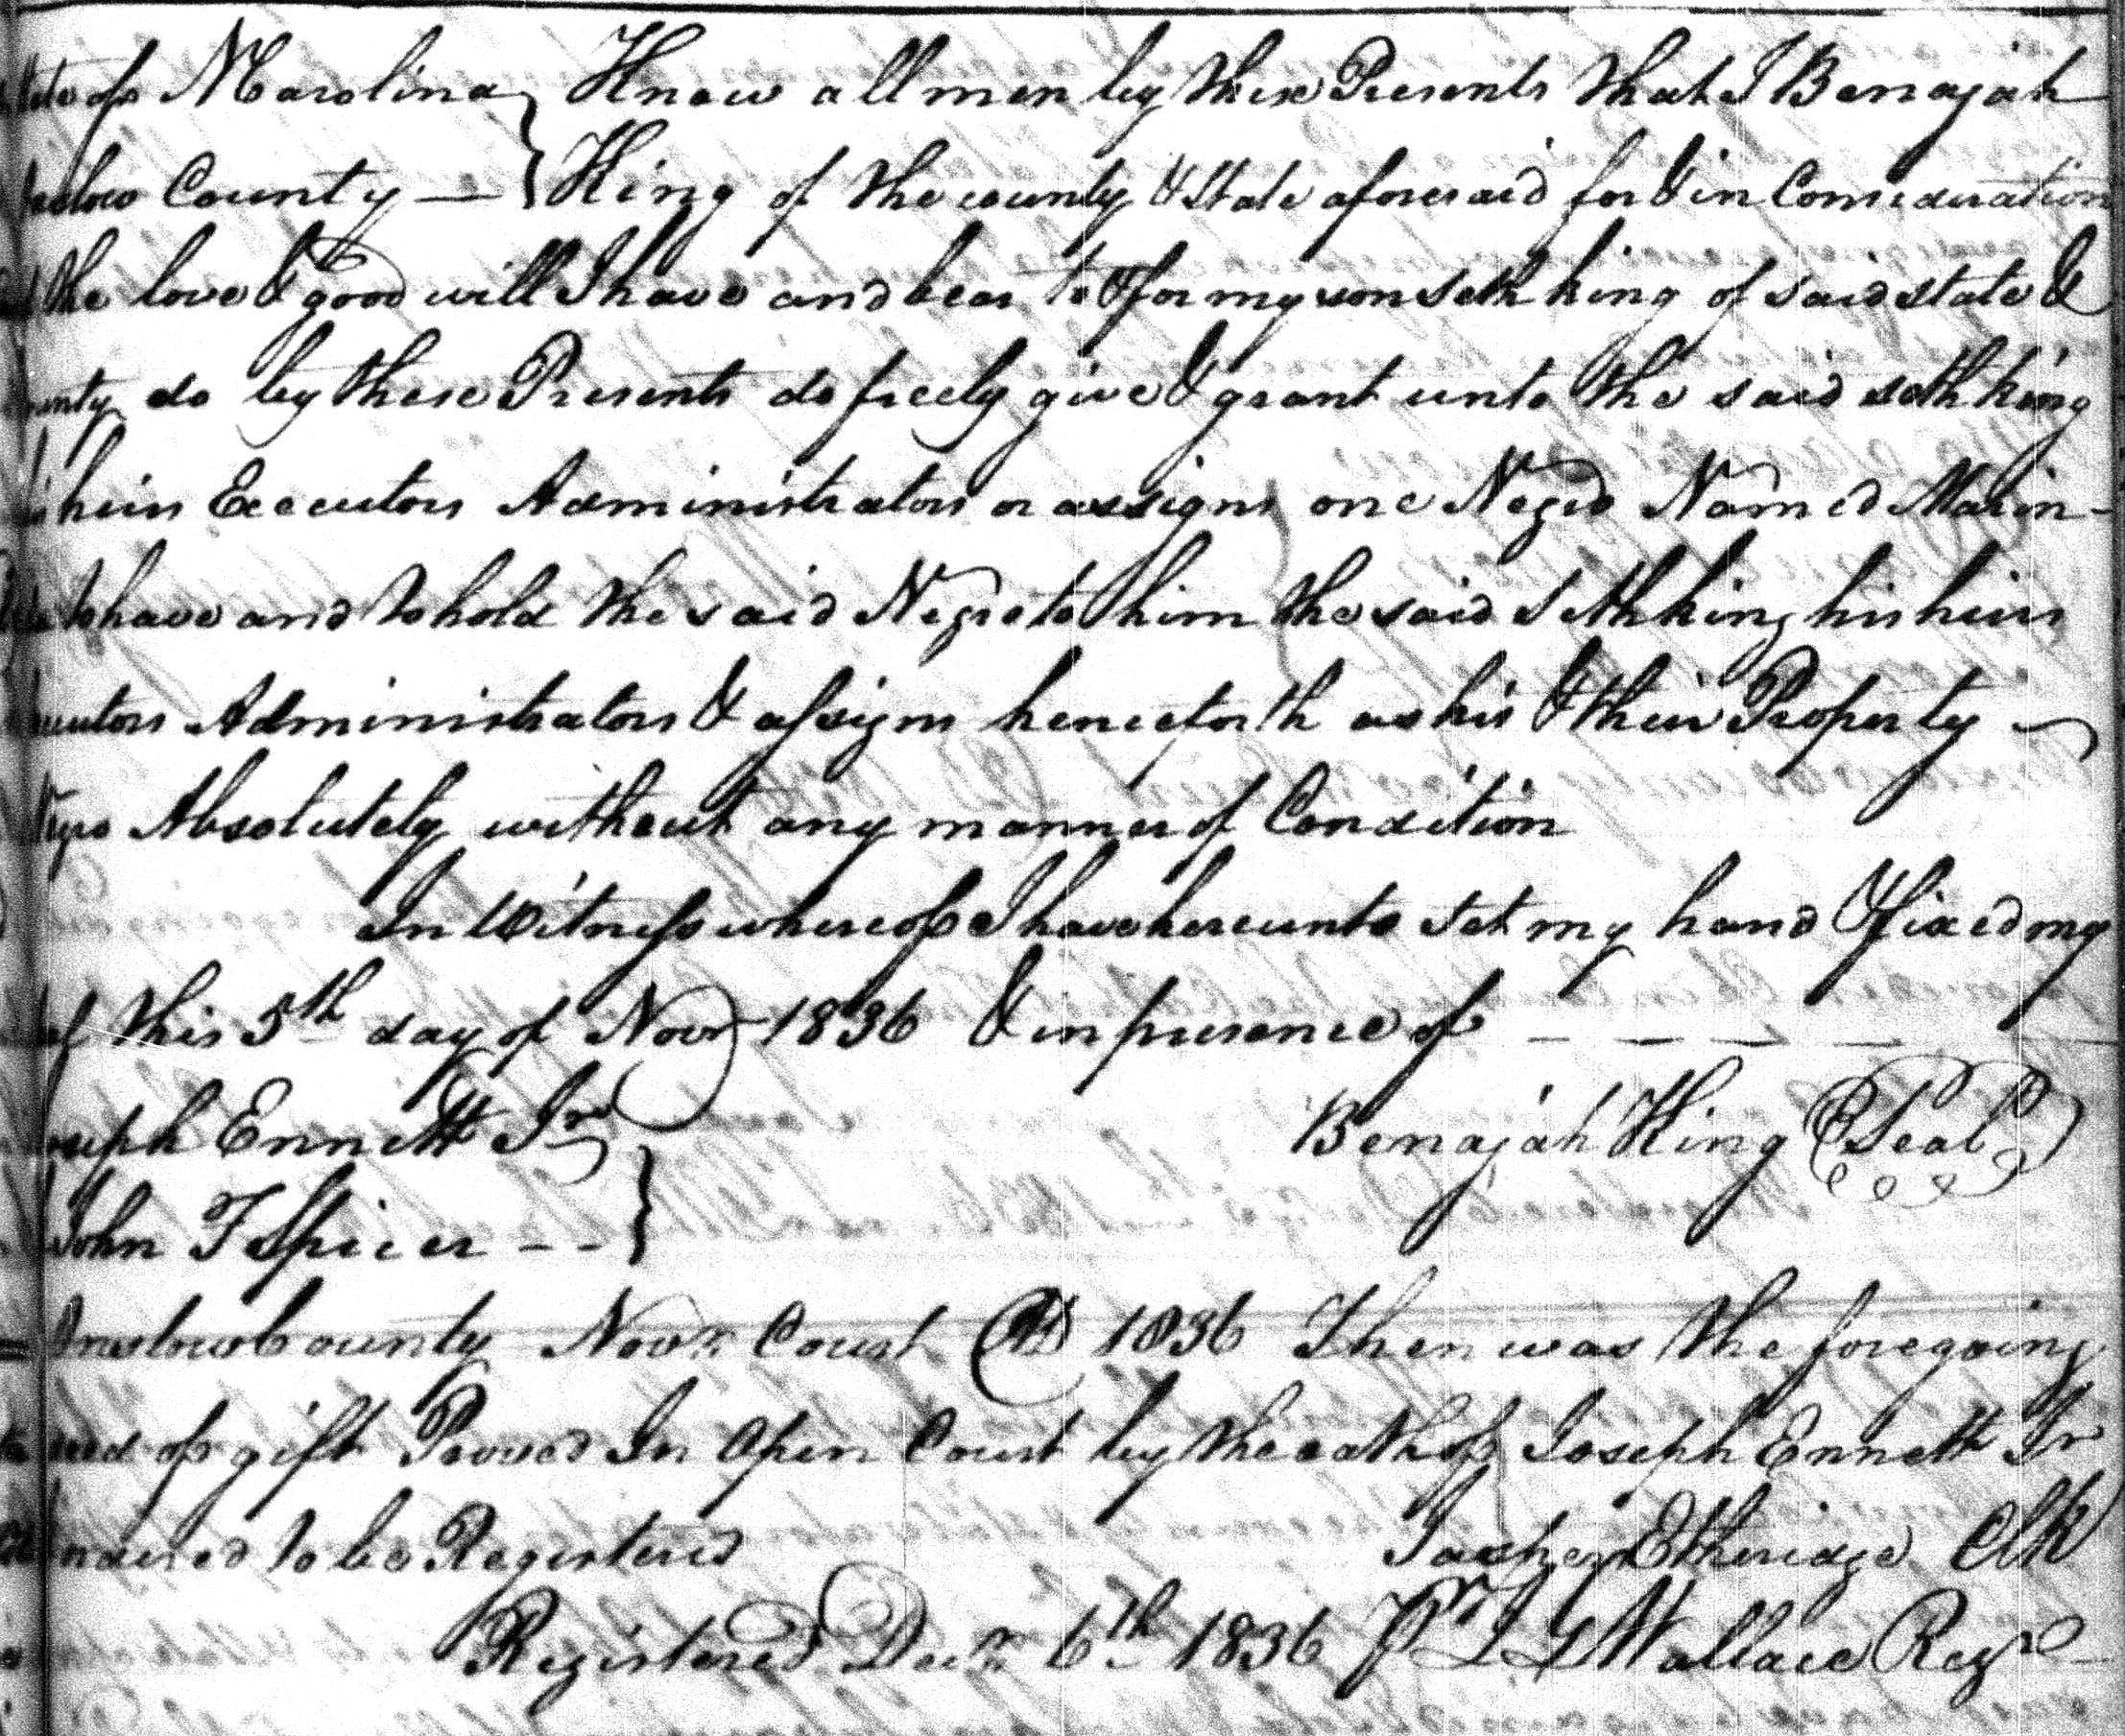 State of N Carolina } Know all men by these Presents that I Benajah
County — } King of the county & State aforesaid for & in Consideration
the love & good will I have and bear to & for my son Seth king of said state &
county do by these Presents do freely give & grant unto the said seth king
heirs Executors Administrators or assigns one Negro Named Marin-
to have and to hold the said Negro to him the said Seth king his heirs
Administrators & assigns henceforth as his & their Property
Absolutely without any manner of Condition
In Witness whereof I have hereunto set my hand & fixed my
this 5th day of Novr 1836 & in presence of - - - -
Joseph Ennett Jr }
Benajah King (Seal)
John F Spicer - - }
Onslow County Novr Court AD 1836 Then was the foregoing
deed of gift Proved In Open Court by the oath of Joseph Ennett Jr
to be Registered
Etheridge Clk
Registered Decr 6th 1836 Wallace Regr